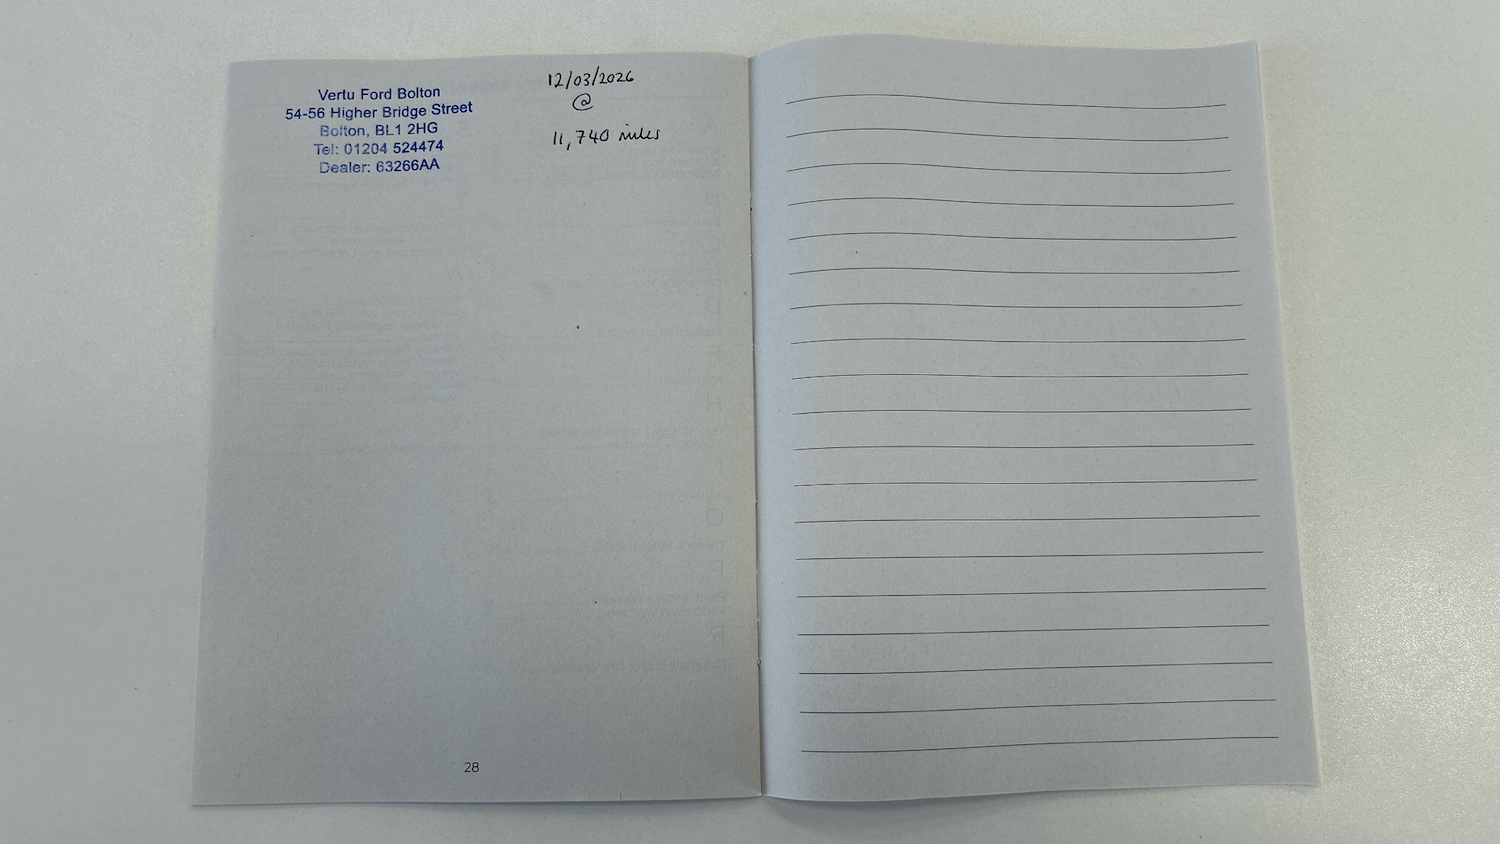 Vertu Ford Bolton
54-56 Higher Bridge Street
Bolton, BL1 2HG
Tel: 01204 524474
Dealer: 63266AA
12/03/2026
@
11,740 miles
28